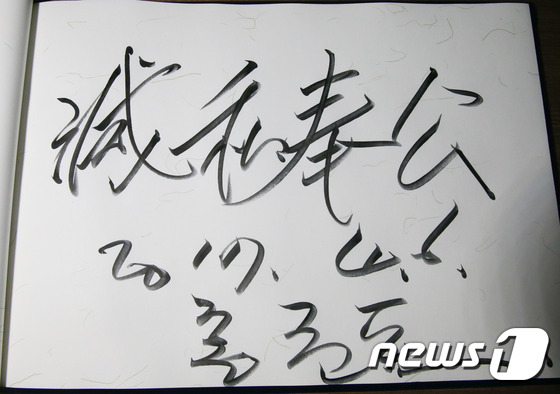 滅私奉公
2017. 4. 6.
홍준표
news1